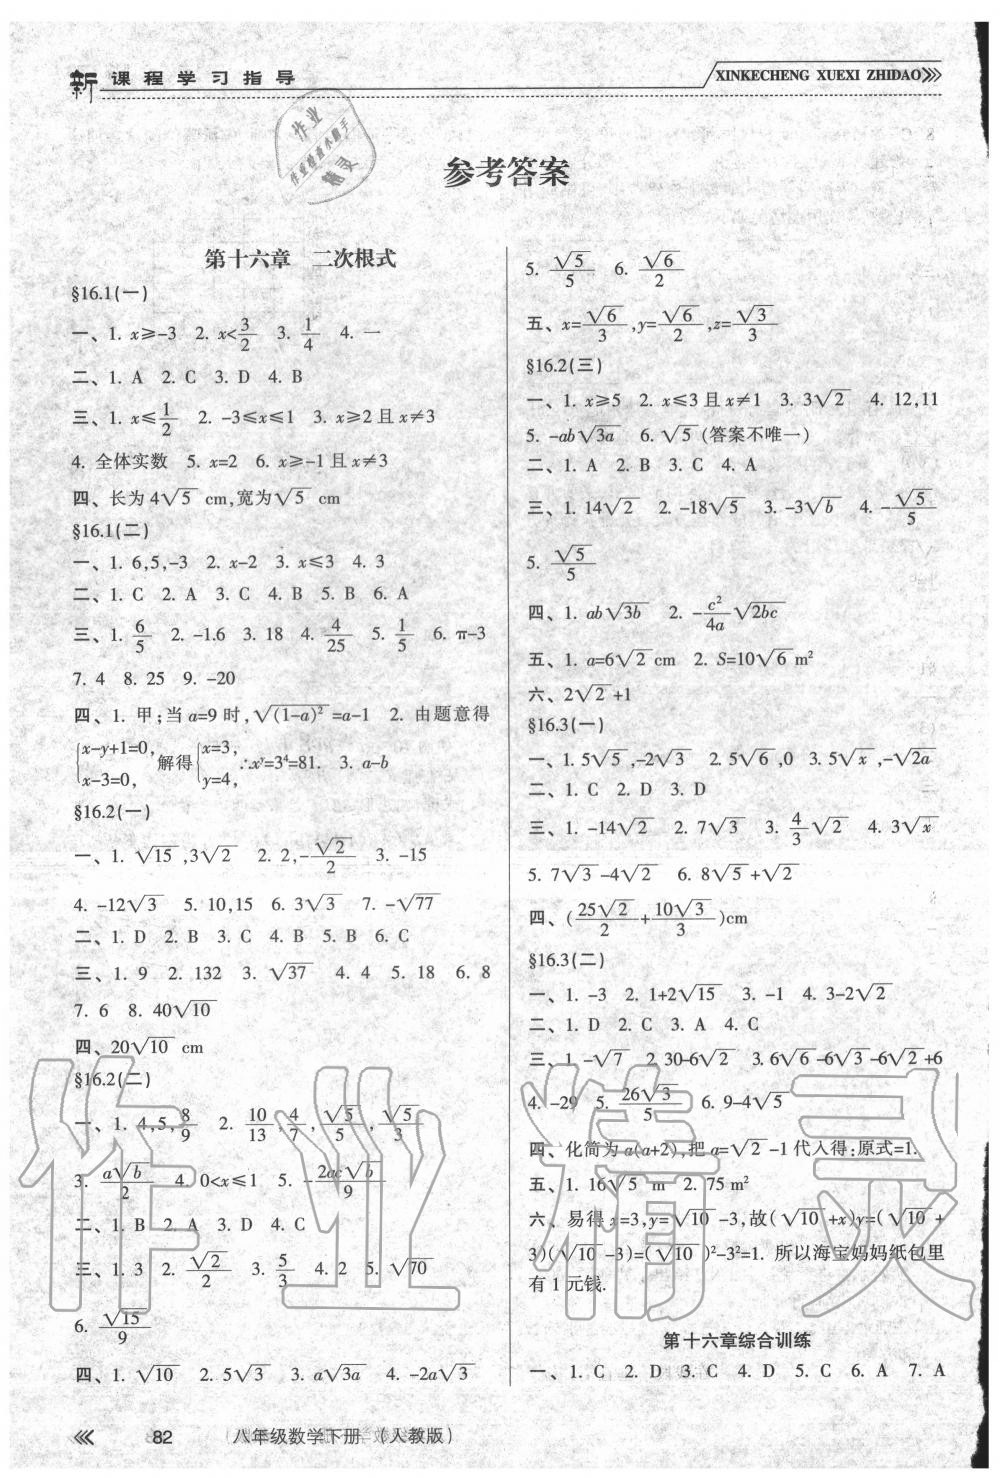 新 课程学习指导
XINKECHENG XUEXI ZHIDAO
作业
作业检查小助手
精灵
参考答案
第十六章 二次根式
§16.1(一)
一、1. x≥-3 2. x<3/2 3. 1/4 4. 一
二、1. A 2. C 3. D 4. B
三、1. x≤1/2 2. -3≤x≤1 3. x≥2且x≠3
4. 全体实数 5. x=2 6. x≥-1且x≠3
四、长为4√5 cm,宽为√5 cm
§16.1(二)
一、1. 6,5,-3 2. x-2 3. x≤3 4. 3
二、1. C 2. A 3. C 4. B 5. B 6. A
三、1. 6/5 2. -1.6 3. 18 4. 4/25 5. 1/5 6. π-3
7. 4 8. 25 9. -20
四、1. 甲;当a=9时,√(1-a)²=a-1 2. 由题意得
{x-y+1=0, x-3=0, 解得{x=3, y=4, ∴xʸ=3⁴=81. 3. a-b
§16.2(一)
一、1. √15,3√2 2. 2,-√2/2 3. -15
4. -12√3 5. 10,15 6. 3√3 7. -√77
二、1. D 2. B 3. C 4. B 5. B 6. C
三、1. 9 2. 132 3. √37 4. 4 5. 18 6. 8
7. 6 8. 40√10
四、20√10 cm
§16.2(二)
一、1. 4,5,8/9 2. 10/13,4/7,√5/5,√5/3
3. a√b/2 4. 0<x≤1 5. -2ac√b/9
二、1. B 2. A 3. D 4. C
三、1. 3 2. √2/2 3. 5/3 4. 2 5. √70
6. √15/9
四、1. √10 2. 5√3 3. a√3a 4. -2a√3
5. √5/5 6. √6/2
五、x=√6/3,y=√6/2,z=√3/3
§16.2(三)
一、1. x≥5 2. x≤3且x≠1 3. 3√2 4. 12,11
5. -ab√3a 6. √5(答案不唯一)
二、1. A 2. B 3. C 4. A
三、1. 14√2 2. -18√5 3. -3√b 4. -√5/5
5. √5/5
四、1. ab√3b 2. -c²/4a√2bc
五、1. a=6√2cm 2. S=10√6m²
六、2√2+1
§16.3(一)
一、1. 5√5,-2√3 2. 5√6,0 3. 5√x,-√2a
二、1. C 2. D 3. D
三、1. -14√2 2. 7√3 3. 4/3√2 4. 3√x
5. 7√3-4√2 6. 8√5+√2
四、(25√2/2+10√3/3)cm
§16.3(二)
一、1. -3 2. 1+2√15 3. -1 4. 3-2√2
二、1. D 2. C 3. A 4. C
三、1. -√7 2. 30-6√2 3. 6√6-6√3-6√2+6
4. -29 5. 26√3/5 6. 9-4√5
四、化简为a(a+2),把a=√2-1代入得:原式=1.
五、1. 16√5 m 2. 75 m²
六、易得x=3,y=√10-3,故(√10+x)y=(√10+
3)(√10-3)=(√10)²-3²=1. 所以海宝妈妈纸包里
有1元钱.
第十六章综合训练
一、1. C 2. D 3. C 4. D 5. C 6. A 7. A
作业精灵
82 八年级数学下册 (人教版)